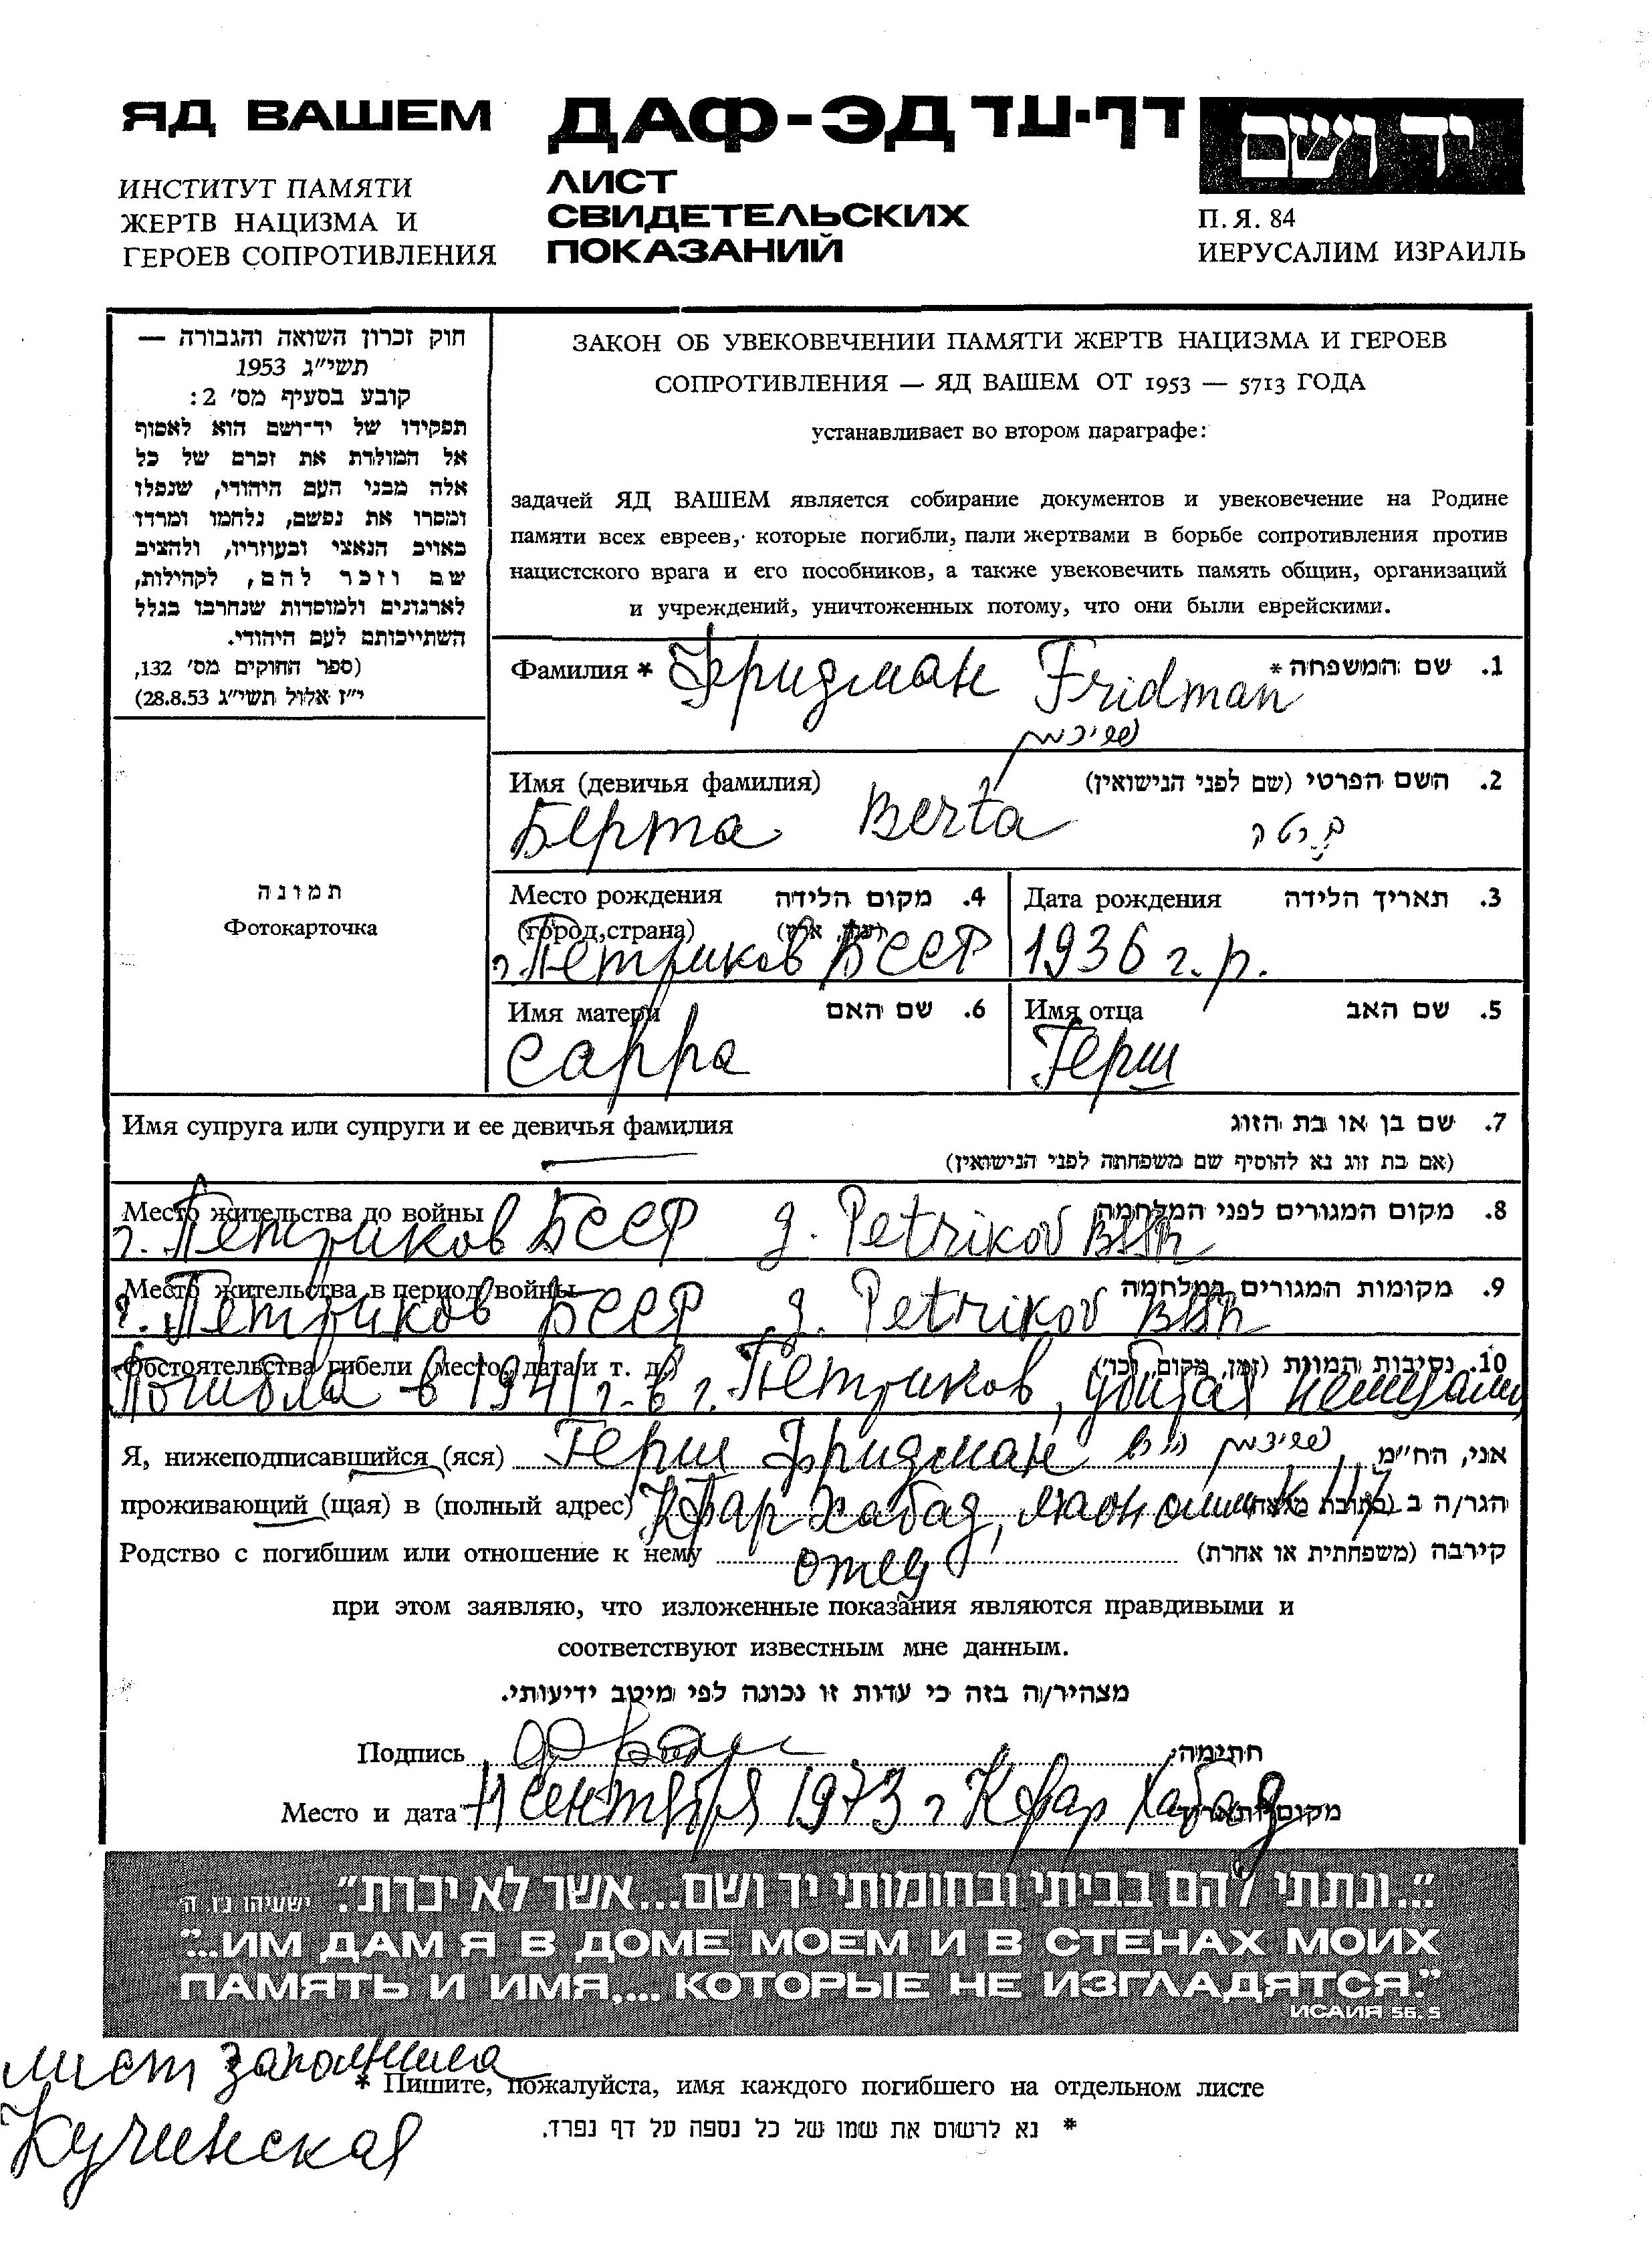 ЯД ВАШЕМ
ИНСТИТУТ ПАМЯТИ
ЖЕРТВ НАЦИЗМА И
ГЕРОЕВ СОПРОТИВЛЕНИЯ
ДАФ-ЭД דף-עד
ЛИСТ
СВИДЕТЕЛЬСКИХ
ПОКАЗАНИЙ
יד ושם
П. Я. 84
ИЕРУСАЛИМ ИЗРАИЛЬ
חוק זכרון השואה והגבורה —
תשי״ג 1953
קובע בסעיף מס׳ 2:
תפקידו של יד־ושם הוא לאסוף
אל המולדת את זכרם של כל
אלה מבני העם היהודי, שנפלו
ומסרו את נפשם, נלחמו ומרדו
באויב הנאצי ובעוזריו, ולהציב
שם וזכר להם, לקהילות,
לארגונים ולמוסדות שנחרבו בגלל
השתייכותם לעם היהודי.
(ספר החוקים מס׳ 132,
י״ז אלול תשי״ג 28.8.53)
תמונה
Фотокарточка
ЗАКОН ОБ УВЕКОВЕЧЕНИИ ПАМЯТИ ЖЕРТВ НАЦИЗМА И ГЕРОЕВ
СОПРОТИВЛЕНИЯ — ЯД ВАШЕМ ОТ 1953 — 5713 ГОДА
устанавливает во втором параграфе:
задачей ЯД ВАШЕМ является собирание документов и увековечение на Родине
памяти всех евреев, которые погибли, пали жертвами в борьбе сопротивления против
нацистского врага и его пособников, а также увековечить память общин, организаций
и учреждений, уничтоженных потому, что они были еврейскими.
Фамилия * Фридман Fridman 1. שם המשפחה *
פרידמן
Имя (девичья фамилия) 2. השם הפרטי (שם לפני הנישואין)
Берта Berta ברטה
Место рождения 4. מקום הלידה
(город, страна) (עיר, ארץ)
г. Петриков БССР
Дата рождения 3. תאריך הלידה
1936 г. р.
Имя матери 6. שם האם
Сарра
Имя отца 5. שם האב
Герш
Имя супруга или супруги и ее девичья фамилия 7. שם בן או בת הזוג
(אם בת זוג נא להוסיף שם משפחתה לפני הנישואין)
Место жительства до войны 8. מקום המגורים לפני המלחמה
г. Петриков БССР g. Petrikov
Место жительства в период войны 9. מקומות המגורים במלחמה
г. Петриков БССР g. Petrikov
Обстоятельства гибели (место, дата и т. д.) 10. נסיבות המוות (זמן, מקום, וכו׳)
Погибла в 1941 г. в г. Петриков, убитая немцами
Я, нижеподписавшийся (яся) Герш Фридман פרידמן הירש אני, הח״מ
проживающий (щая) в (полный адрес) Кфар Хабад, 117 הגר/ה ב (כתובת מלאה)
Родство с погибшим или отношение к нему отец קירבה (משפחתית או אחרת)
при этом заявляю, что изложенные показания являются правдивыми и
соответствуют известным мне данным.
מצהיר/ה בזה כי עדות זו נכונה לפי מיטב ידיעותי.
Подпись חתימה
Место и дата 11 сентября 1973 г Кфар Хабад מקום ותאריך
״...ונתתי להם בביתי ובחומותי יד ושם...אשר לא יכרת״. ישעיהו נ״ו, ה׳
"...ИМ ДАМ Я В ДОМЕ МОЕМ И В СТЕНАХ МОИХ
ПАМЯТЬ И ИМЯ,... КОТОРЫЕ НЕ ИЗГЛАДЯТСЯ."
ИСАИЯ 56. 5
лист заполнила
Кучинская
* Пишите, пожалуйста, имя каждого погибшего на отдельном листе
* נא לרשום את שמו של כל נספה על דף נפרד.